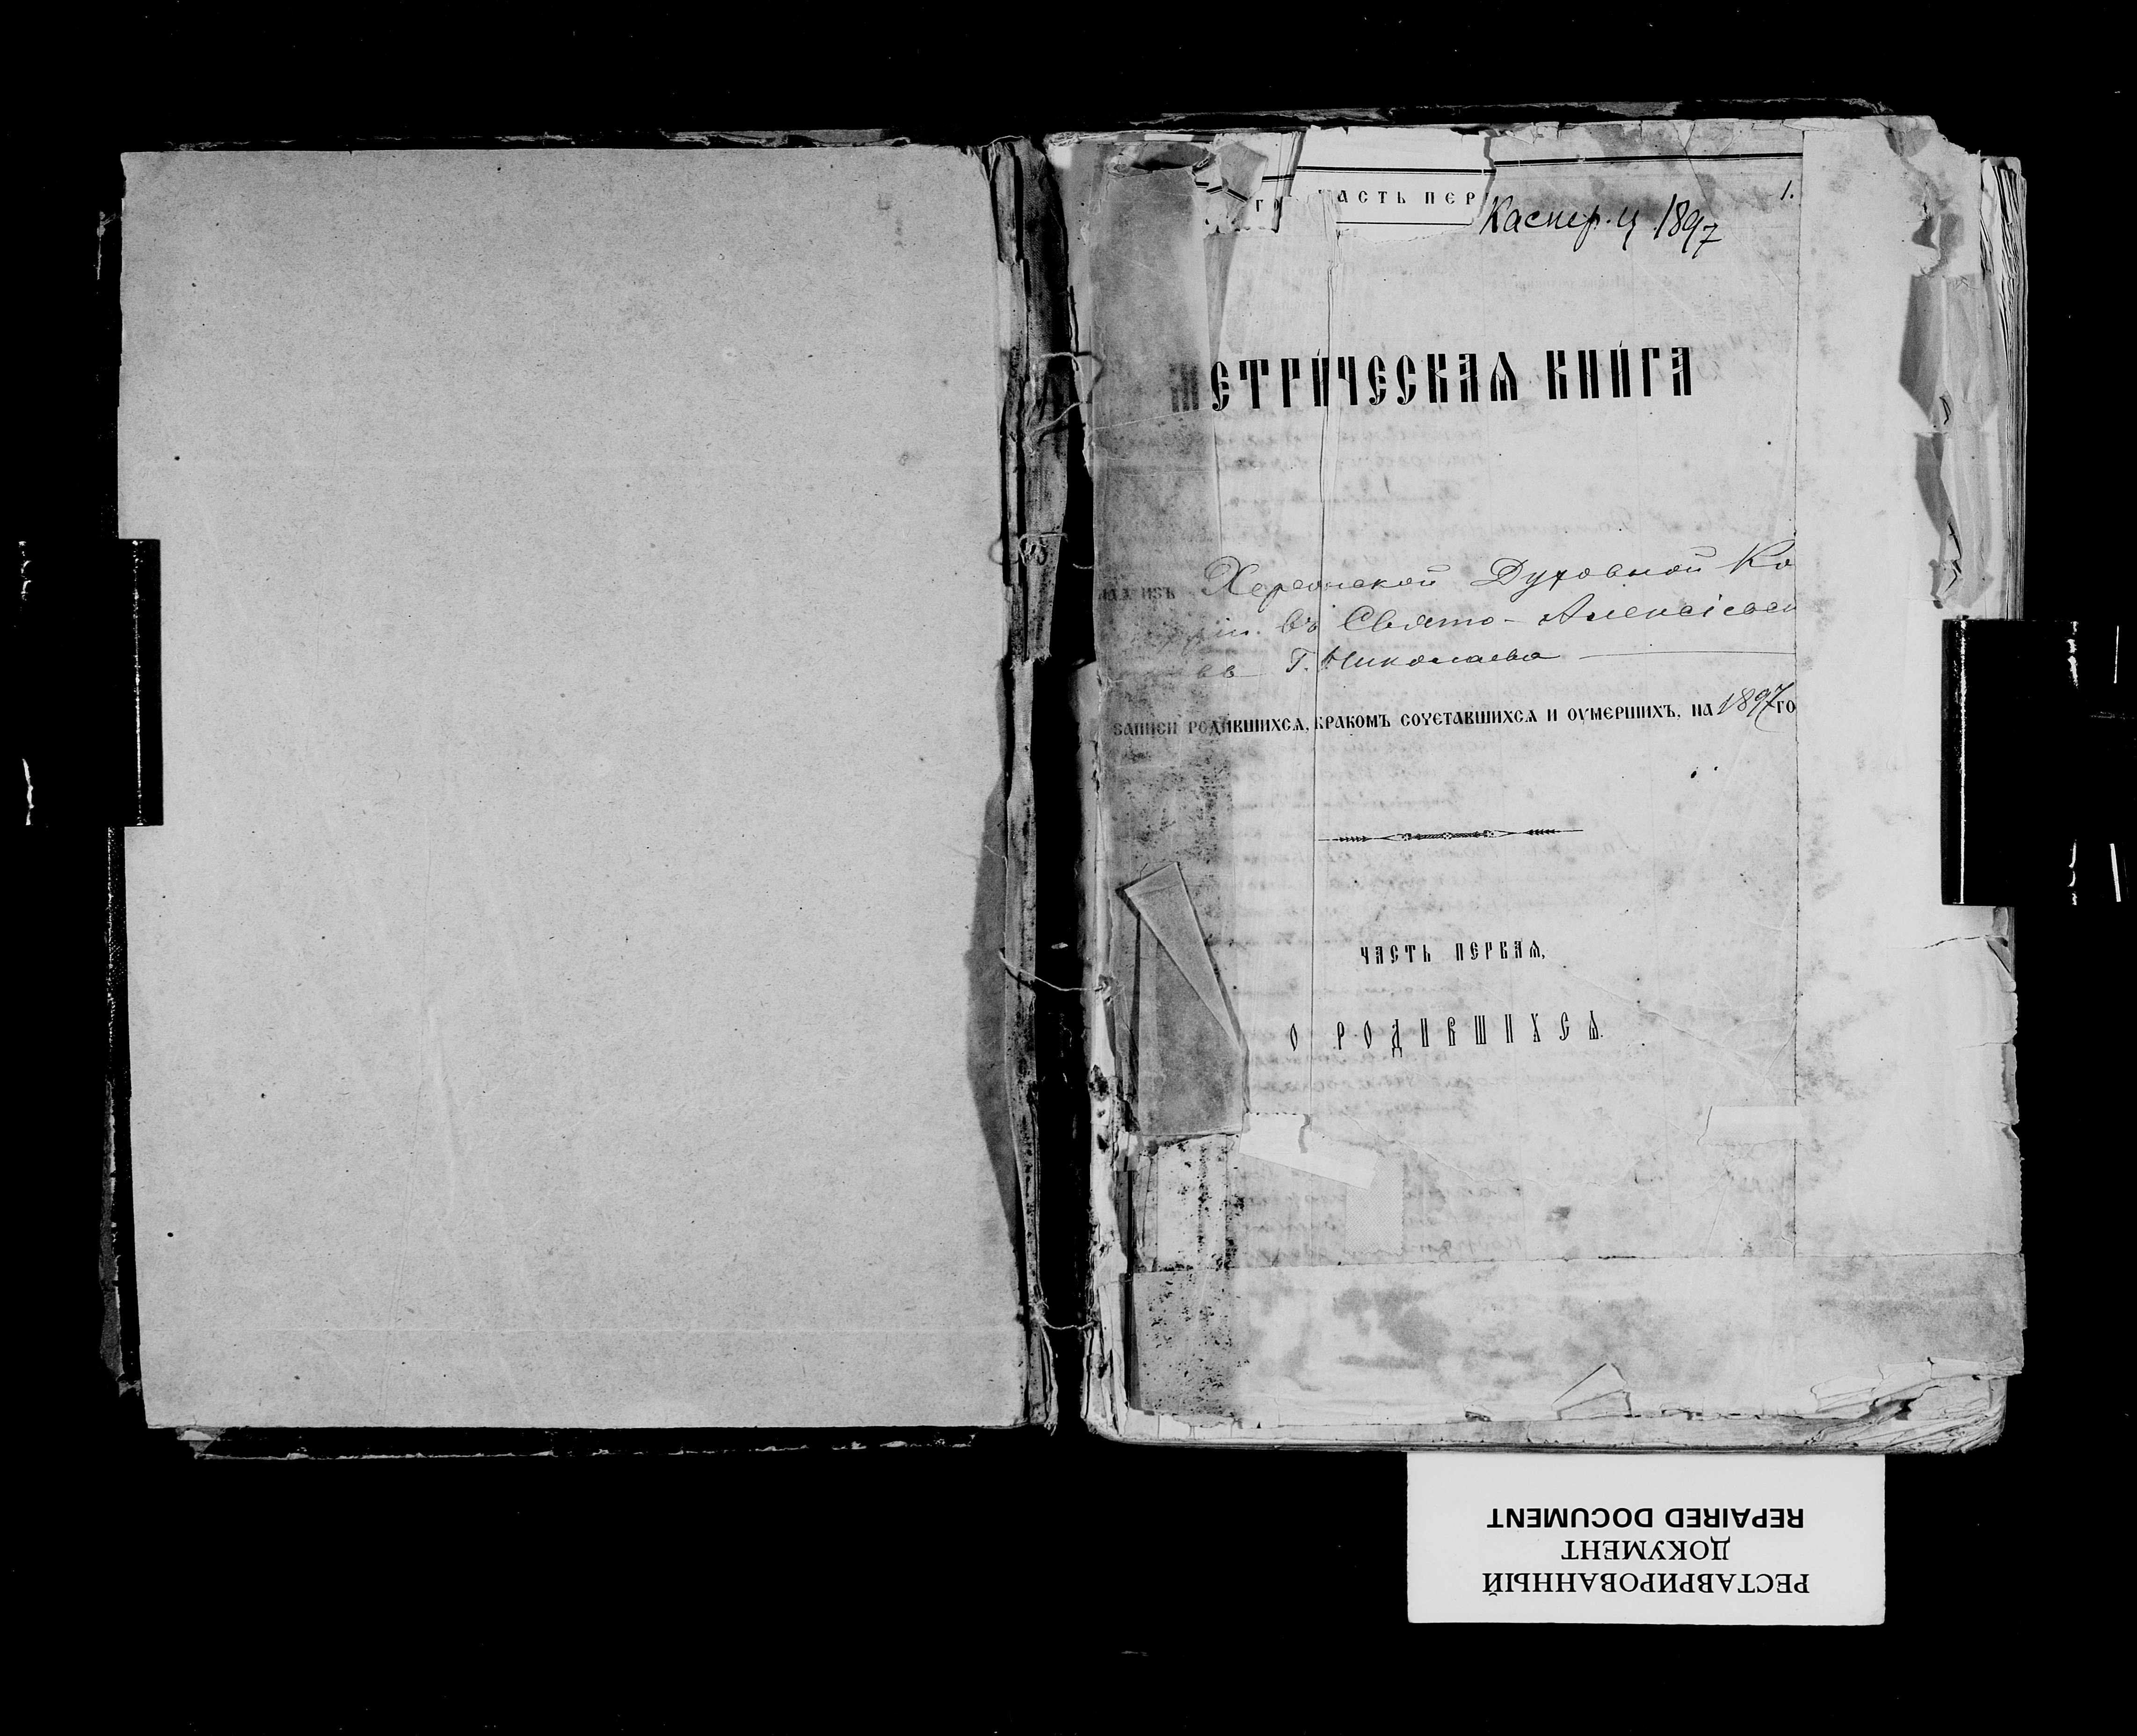 го часть пер
Каспер. ц 1897
1.
Метри́ческаѧ кни́га
изъ Херсонской Духовной Ко
ріи въ Свято-Алексіевск
въ г. Николаева
записи родившихсѧ, бракомъ сочетавшихсѧ и оумершихъ, на 1897 го
часть первая,
о родившихсѧ.
РЕСТАВРИРОВАННЫЙ
ДОКУМЕНТ
REPAIRED DOCUMENT